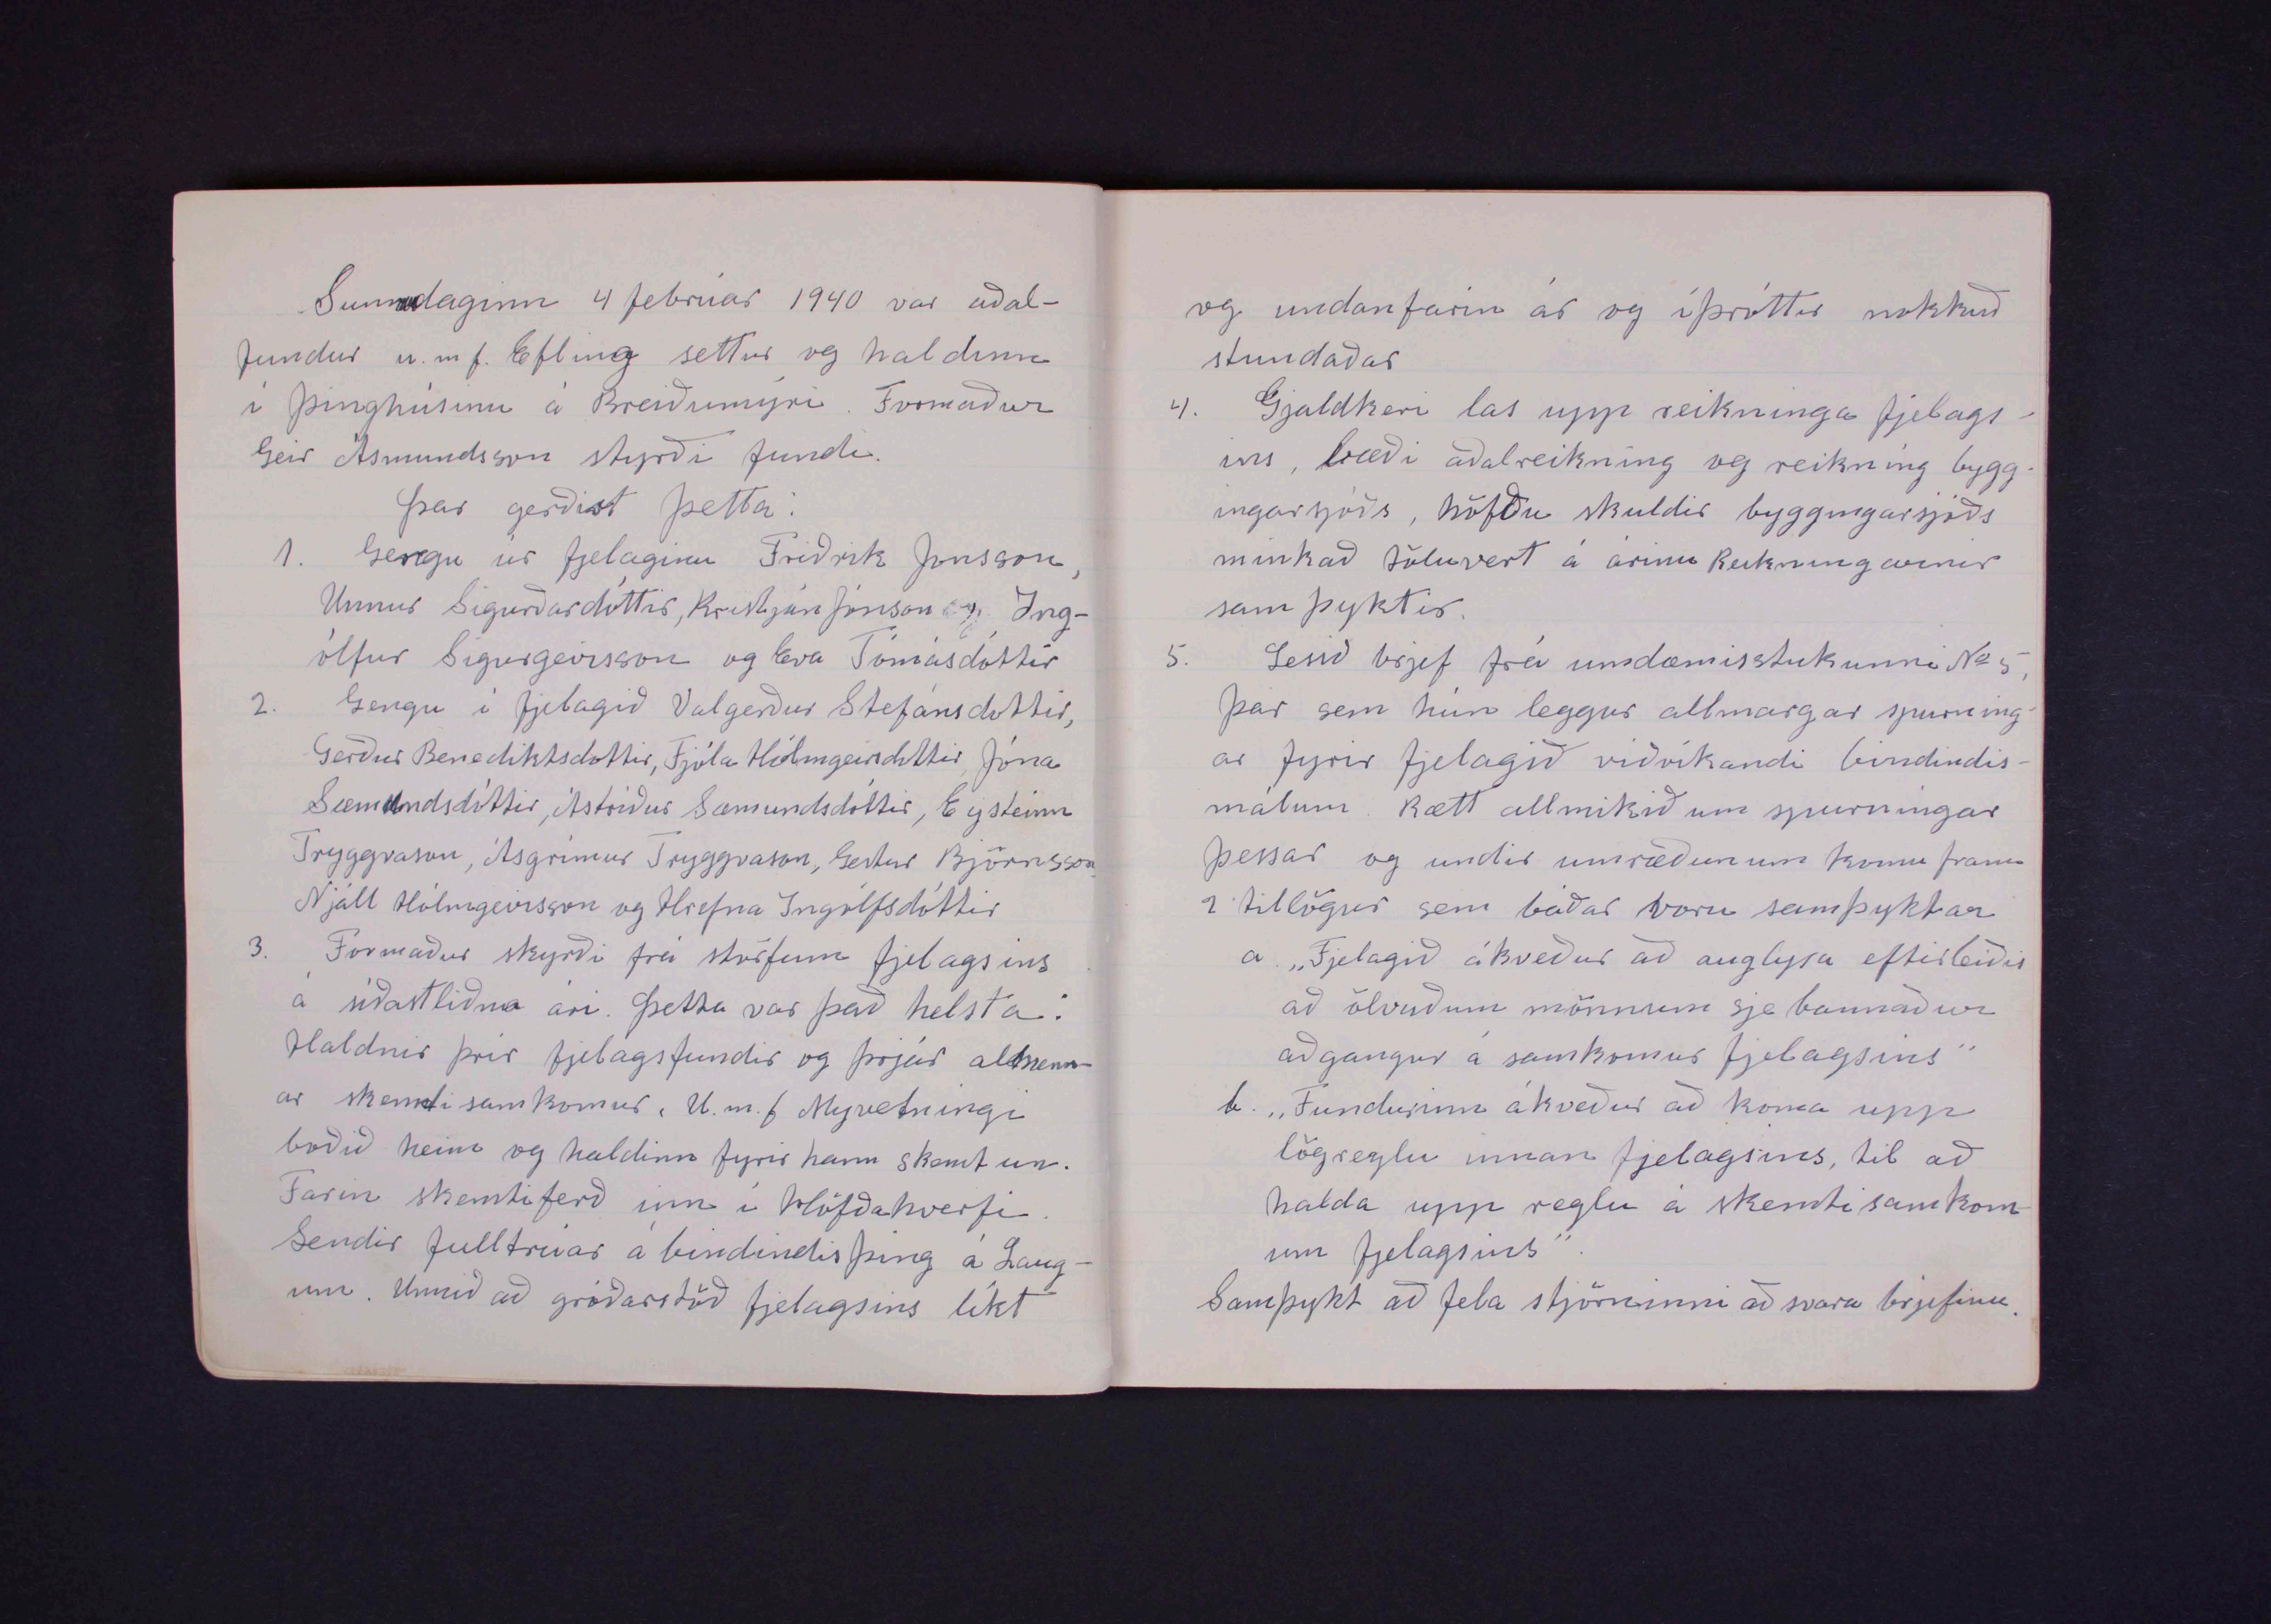 Sunnudaginn 4 febrúar 1940 var aðal-
fundur u.m.f. Efling settur og haldinn
í þinghúsinu á Breiðumýri. Formaður
Geir Ásmundsson styrði fundi.
Þar gerðist þetta:
1. Gengu úr fjelaginu Friðrik Jónsson,
Unnur Sigurðardóttir, Kristján Jónsson Ing-
ólfur Sigurgeirsson og Eva Tómásdóttir
2. Gengu í fjelagið Valgerður Stefánsdóttir,
Gerður Benediktsdottir, Fjóla Hólmgeirsdóttir, Jóna
Sæmundsdóttir, Ástríður Sæmundsdóttir, Eysteinn
Tryggvason, Ásgrímur Tryggvason, Gestur Björnsson
Njáll Hólmgeirsson og Hrefna Ingólfsdóttir
3. Formaður skyrði frá störfum fjelagsins
á síðastliðna ári. Þetta var það helsta:
Haldnir þrír fjelagsfundir og þrjár almenn-
ar skemtisamkomur. U.m.f Myvetningi
boðið heim og haldinn fyrir hann skemtun.
Farin skemtiferð inn í Höfðahverfi.
Sendir fulltrúar á bindindisþing á Laug-
um. Unnið að gróðarstöð fjelagsins líkt
og undanfarin ár og íþróttir nokkuð
stundaðar
4. Gjaldkeri las upp reikninga fjelags-
ins, bæði aðalreikning og reikning bygg-
ingarsjóðs, höfðu skuldir byggingarsjóðs
minkað töluvert á árinu Reikningarnir
samþyktir.
5. Lesið brjef frá umdæmisstukunni № 5,
þar sem hún leggur allmargar spurning-
ar fyrir fjelagið viðvíkandi bindindis-
málum. Rætt allmikið um spurningar
þessar og undir umræðunum komu fram
2 tillögur sem báðar voru samþyktar
a. „Fjelagið ákveður að auglysa eftirleiðis
að ölvuðum mönnum sje bannaður
aðgangur á samkomur fjelagsins"
b. „Fundurinn ákveður að koma upp
lögreglu innan fjelagsins, til að
halda upp reglu á skemtisamkom
um fjelagsins".
Samþykt að fela stjórninni að svara brjefinu.